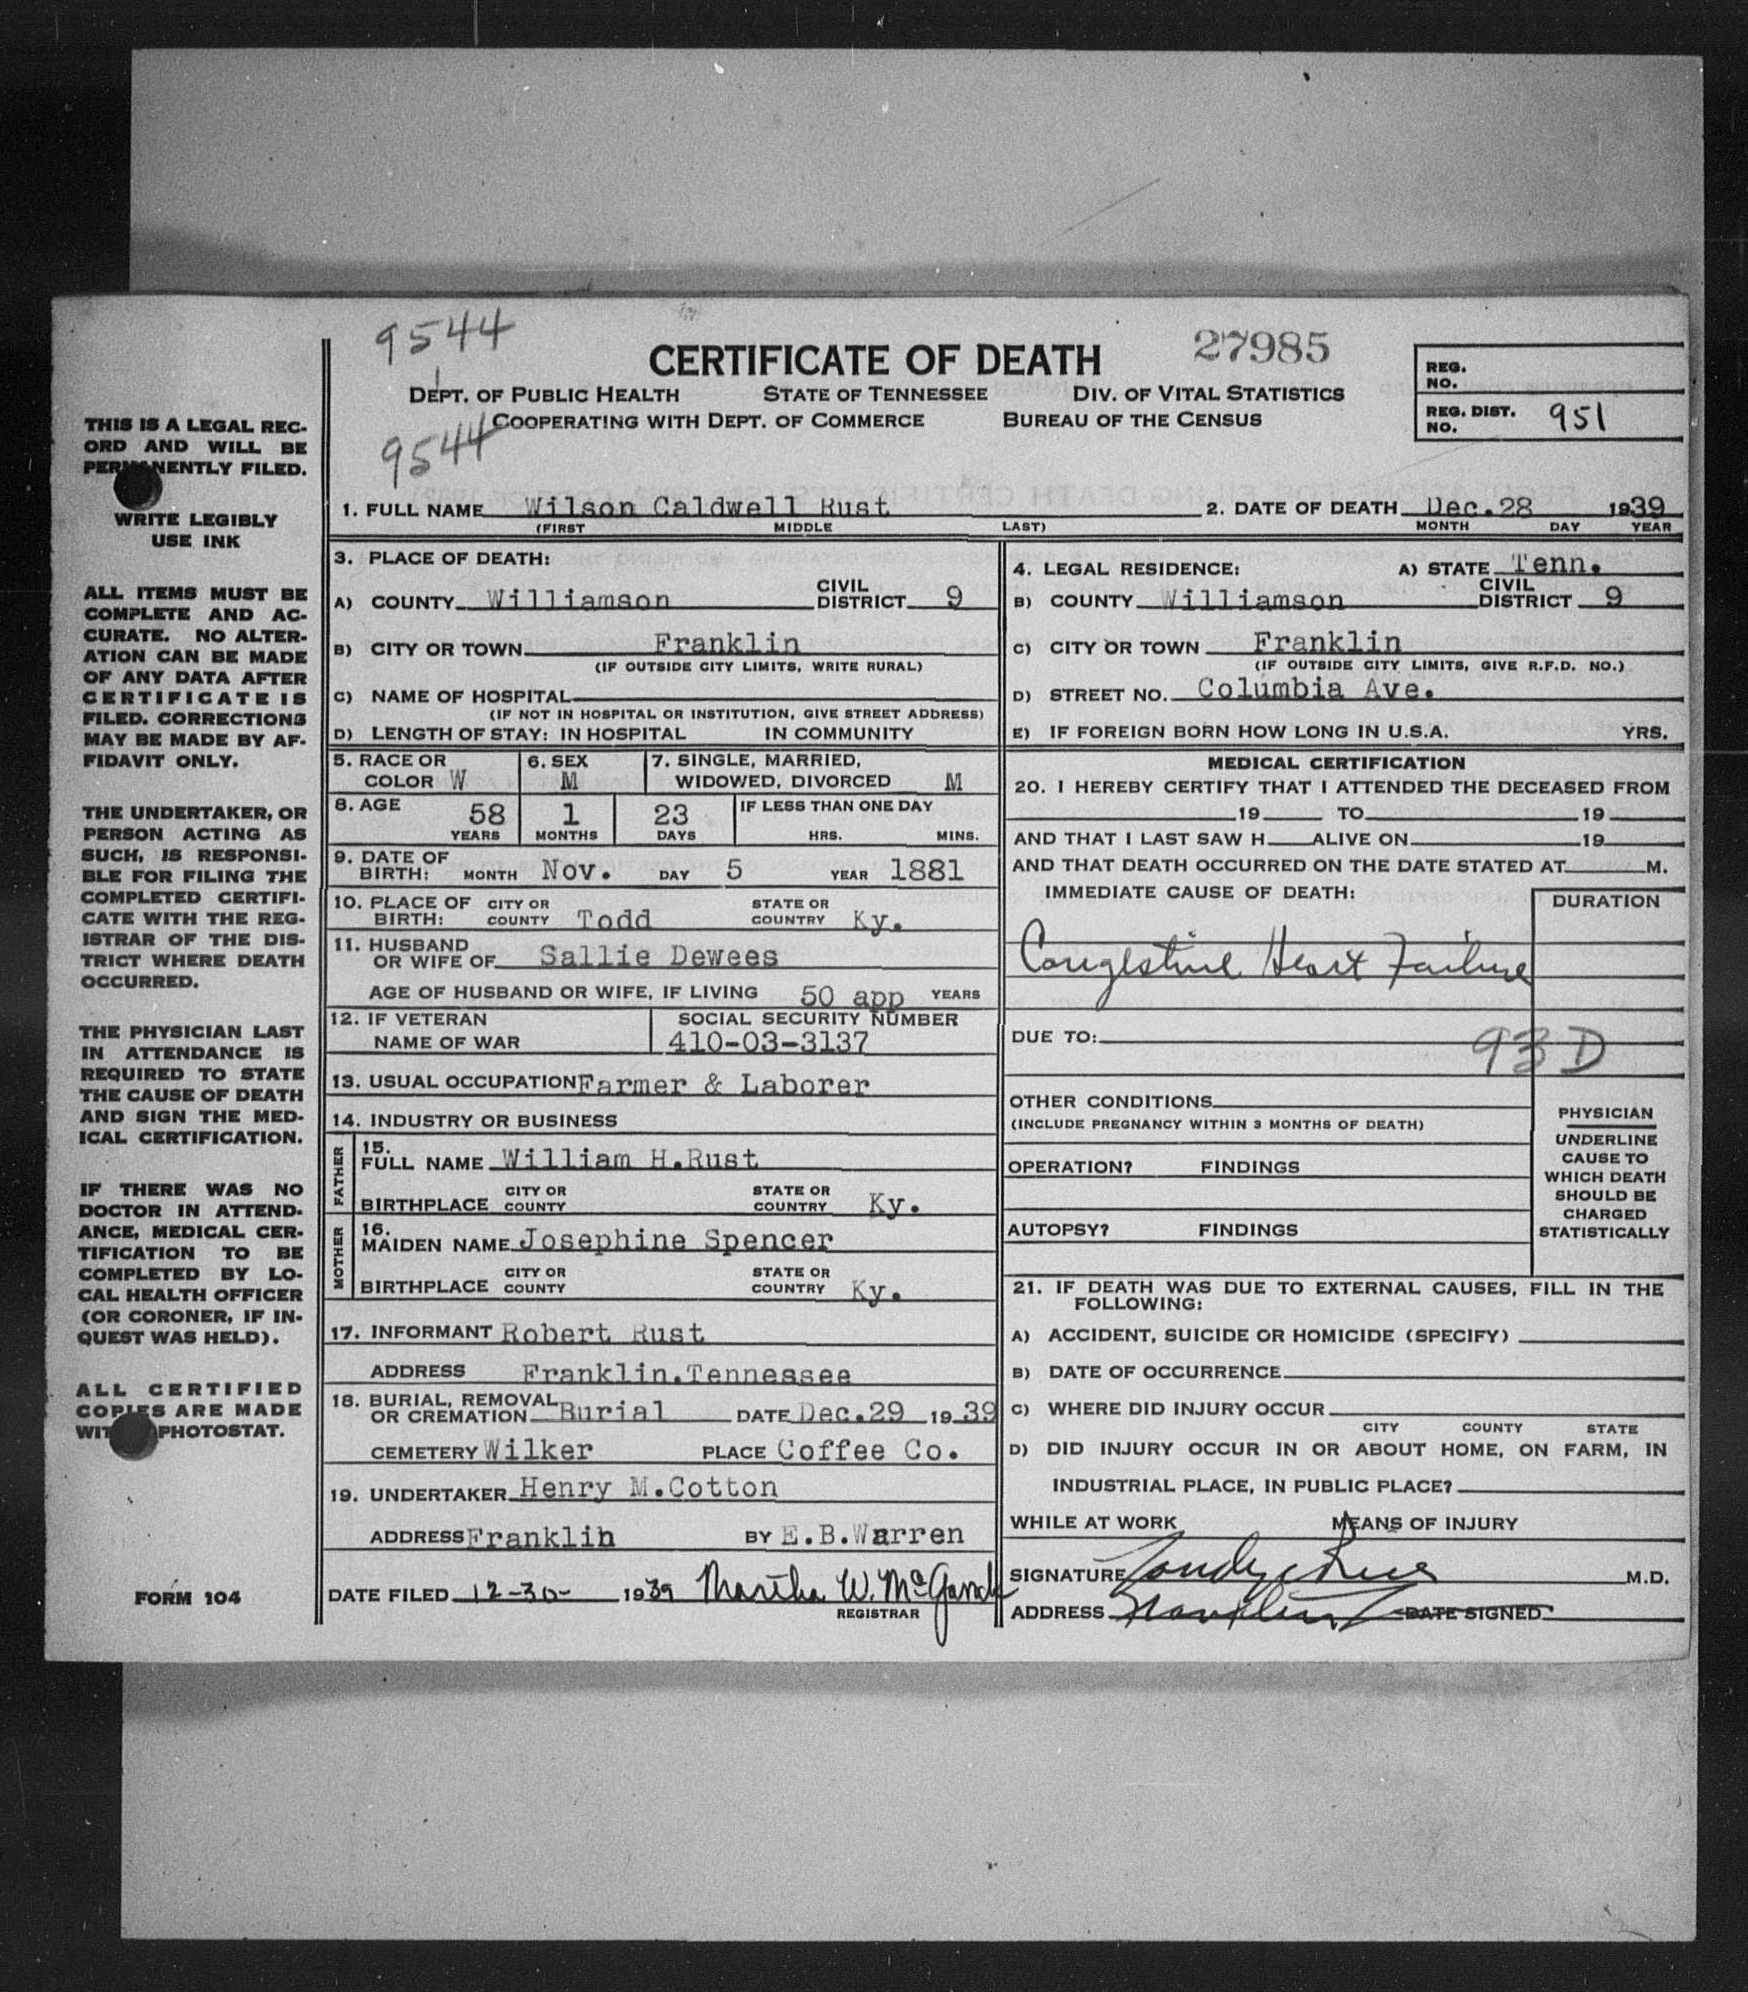 9544
CERTIFICATE OF DEATH 27985
DEPT. OF PUBLIC HEALTH STATE OF TENNESSEE DIV. OF VITAL STATISTICS
COOPERATING WITH DEPT. OF COMMERCE BUREAU OF THE CENSUS
9544
REG. NO.
REG. DIST. NO. 951
THIS IS A LEGAL REC-
ORD AND WILL BE
PERMANENTLY FILED.
WRITE LEGIBLY
USE INK
ALL ITEMS MUST BE
COMPLETE AND AC-
CURATE. NO ALTER-
ATION CAN BE MADE
OF ANY DATA AFTER
CERTIFICATE IS
FILED. CORRECTIONS
MAY BE MADE BY AF-
FIDAVIT ONLY.
THE UNDERTAKER, OR
PERSON ACTING AS
SUCH, IS RESPONSI-
BLE FOR FILING THE
COMPLETED CERTIFI-
CATE WITH THE REG-
ISTRAR OF THE DIS-
TRICT WHERE DEATH
OCCURRED.
THE PHYSICIAN LAST
IN ATTENDANCE IS
REQUIRED TO STATE
THE CAUSE OF DEATH
AND SIGN THE MED-
ICAL CERTIFICATION.
IF THERE WAS NO
DOCTOR IN ATTEND-
ANCE, MEDICAL CER-
TIFICATION TO BE
COMPLETED BY LO-
CAL HEALTH OFFICER
(OR CORONER, IF IN-
QUEST WAS HELD).
ALL CERTIFIED
COPIES ARE MADE
WITH PHOTOSTAT.
FORM 104
1. FULL NAME Wilson Caldwell Rust 2. DATE OF DEATH Dec.28 1939
(FIRST MIDDLE LAST) MONTH DAY YEAR
3. PLACE OF DEATH:
A) COUNTY Williamson CIVIL DISTRICT 9
B) CITY OR TOWN Franklin
(IF OUTSIDE CITY LIMITS, WRITE RURAL)
C) NAME OF HOSPITAL
(IF NOT IN HOSPITAL OR INSTITUTION, GIVE STREET ADDRESS)
D) LENGTH OF STAY: IN HOSPITAL IN COMMUNITY
4. LEGAL RESIDENCE: A) STATE Tenn.
B) COUNTY Williamson CIVIL DISTRICT 9
C) CITY OR TOWN Franklin
(IF OUTSIDE CITY LIMITS, GIVE R.F.D. NO.)
D) STREET NO. Columbia Ave.
E) IF FOREIGN BORN HOW LONG IN U.S.A. YRS.
5. RACE OR COLOR W 6. SEX M 7. SINGLE, MARRIED, WIDOWED, DIVORCED M
8. AGE 58 YEARS 1 MONTHS 23 DAYS IF LESS THAN ONE DAY HRS. MINS.
9. DATE OF BIRTH: MONTH Nov. DAY 5 YEAR 1881
10. PLACE OF BIRTH: CITY OR COUNTY Todd STATE OR COUNTRY Ky.
11. HUSBAND OR WIFE OF Sallie Dewees
AGE OF HUSBAND OR WIFE, IF LIVING 50 app YEARS
12. IF VETERAN NAME OF WAR SOCIAL SECURITY NUMBER 410-03-3137
13. USUAL OCCUPATION Farmer & Laborer
14. INDUSTRY OR BUSINESS
FATHER
15. FULL NAME William H.Rust
BIRTHPLACE CITY OR COUNTY STATE OR COUNTRY Ky.
MOTHER
16. MAIDEN NAME Josephine Spencer
BIRTHPLACE CITY OR COUNTY STATE OR COUNTRY Ky.
17. INFORMANT Robert Rust
ADDRESS Franklin.Tennessee
18. BURIAL, REMOVAL OR CREMATION Burial DATE Dec.29 1939
CEMETERY Wilker PLACE Coffee Co.
19. UNDERTAKER Henry M.Cotton
ADDRESS Franklin BY E.B.Warren
DATE FILED 12-30- 1939 Martha W.
REGISTRAR
MEDICAL CERTIFICATION
20. I HEREBY CERTIFY THAT I ATTENDED THE DECEASED FROM
19 TO 19
AND THAT I LAST SAW H ALIVE ON 19
AND THAT DEATH OCCURRED ON THE DATE STATED AT M.
IMMEDIATE CAUSE OF DEATH: DURATION
Congestive Heart Failure
DUE TO: 93D
OTHER CONDITIONS
(INCLUDE PREGNANCY WITHIN 3 MONTHS OF DEATH)
OPERATION? FINDINGS
AUTOPSY? FINDINGS
PHYSICIAN
UNDERLINE
CAUSE TO
WHICH DEATH
SHOULD BE
CHARGED
STATISTICALLY
21. IF DEATH WAS DUE TO EXTERNAL CAUSES, FILL IN THE
FOLLOWING:
A) ACCIDENT, SUICIDE OR HOMICIDE (SPECIFY)
B) DATE OF OCCURRENCE
C) WHERE DID INJURY OCCUR
CITY COUNTY STATE
D) DID INJURY OCCUR IN OR ABOUT HOME, ON FARM, IN
INDUSTRIAL PLACE, IN PUBLIC PLACE?
WHILE AT WORK MEANS OF INJURY
SIGNATURE M.D.
ADDRESS Franklin DATE SIGNED